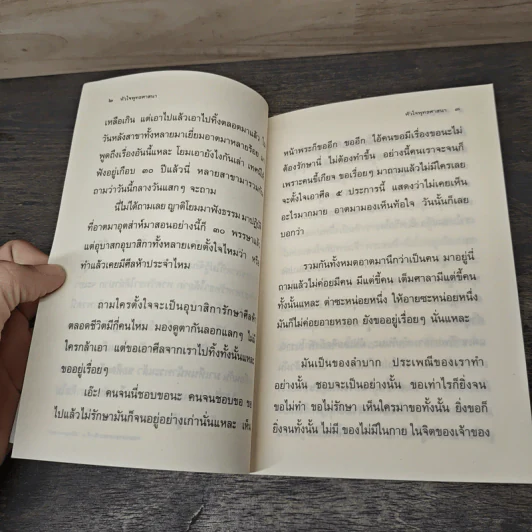 ๒ หัวใจพุทธศาสนา
เหลือเกิน แต่เอาไปแล้วเอาไปทิ้งตลอดมาแล้ว
วันหลังสาขาทั้งหลายมาเยี่ยมอาตมาหลายร้อย
พูดถึงเรื่องอันนี้แหละ โยมเอายังไงกันเล่า เทศน์
ฟังอยู่เกือบ ๓๐ ปีแล้วนี่ หลายสาขามารวม
ถามว่าวันนี้กลางวันแสกๆ จะถาม
นี่ไม่ได้ถามเลย ญาติโยมมาฟังธรรม มาปฏิบัติ
ที่อาตมาอุตส่าห์มาสอนอย่างนี้ก็ ๓๐ พรรษา
แต่อุบาสกอุบาสิกาทั้งหลายเคยตั้งใจไหมว่า
ทำแล้วเคยมีศีลห้าประจำไหม
ถามใครตั้งใจจะเป็นอุบาสิการักษาศีล
ตลอดชีวิตมีกี่คนไหม มองดูตากันลอกแลกๆ ไม่มี
ใครกล้าเอา แต่ขอเอาศีลจากเราไปทิ้งทั้งนั้นแหละ
ขออยู่เรื่อยๆ
เอ๊ะ! คนจนนี่ชอบขอนะ คนจนชอบขอ
ไปแล้วไม่รักษามันก็จนอยู่อย่างเก่านั่นแหละ เห็น
หัวใจพุทธศาสนา ๓
หน้าพระก็ขออีก ขออีก ไอ้คนขอมีเรื่องขอนะไม่
ต้องรักษานี่ ไม่ต้องทำขึ้น อย่างนี้คนเราจะจนก็
เพราะคนขี้เกียจ ขอเรื่อยๆ มาถามแล้วไม่มีใครเลย
จะตั้งใจเอาศีล ๕ ประการนี้ แสดงว่าไม่เคยเห็น
อะไรมากมาย อาตมามองเห็นท้อใจ วันนั้นก็เลย
บอกว่า
รวมกันทั้งหมดอาตมานึกว่าเป็นคน มาอยู่นี่
ถามแล้วไม่ค่อยมีคน มีแต่ขี้คน เต็มศาลามีแต่ขี้คน
ทั้งนั้นแหละ ด่าซะหน่อยหนึ่ง ให้อายซะหน่อยหนึ่ง
มันก็ไม่ค่อยอายหรอก ยังขออยู่เรื่อยๆ นั่นแหละ
มันเป็นของลำบาก ประเพณีของเราทำ
อย่างนั้น ชอบจะเป็นอย่างนั้น ขอเท่าไรก็ยิ่งจน
ขอไม่ทำ ขอไม่รักษา เห็นใครมาขอทั้งนั้น ยิ่งขอก็
ยิ่งจนทั้งนั้น ไม่มี ของไม่มีในกาย ในจิตของเจ้าของ